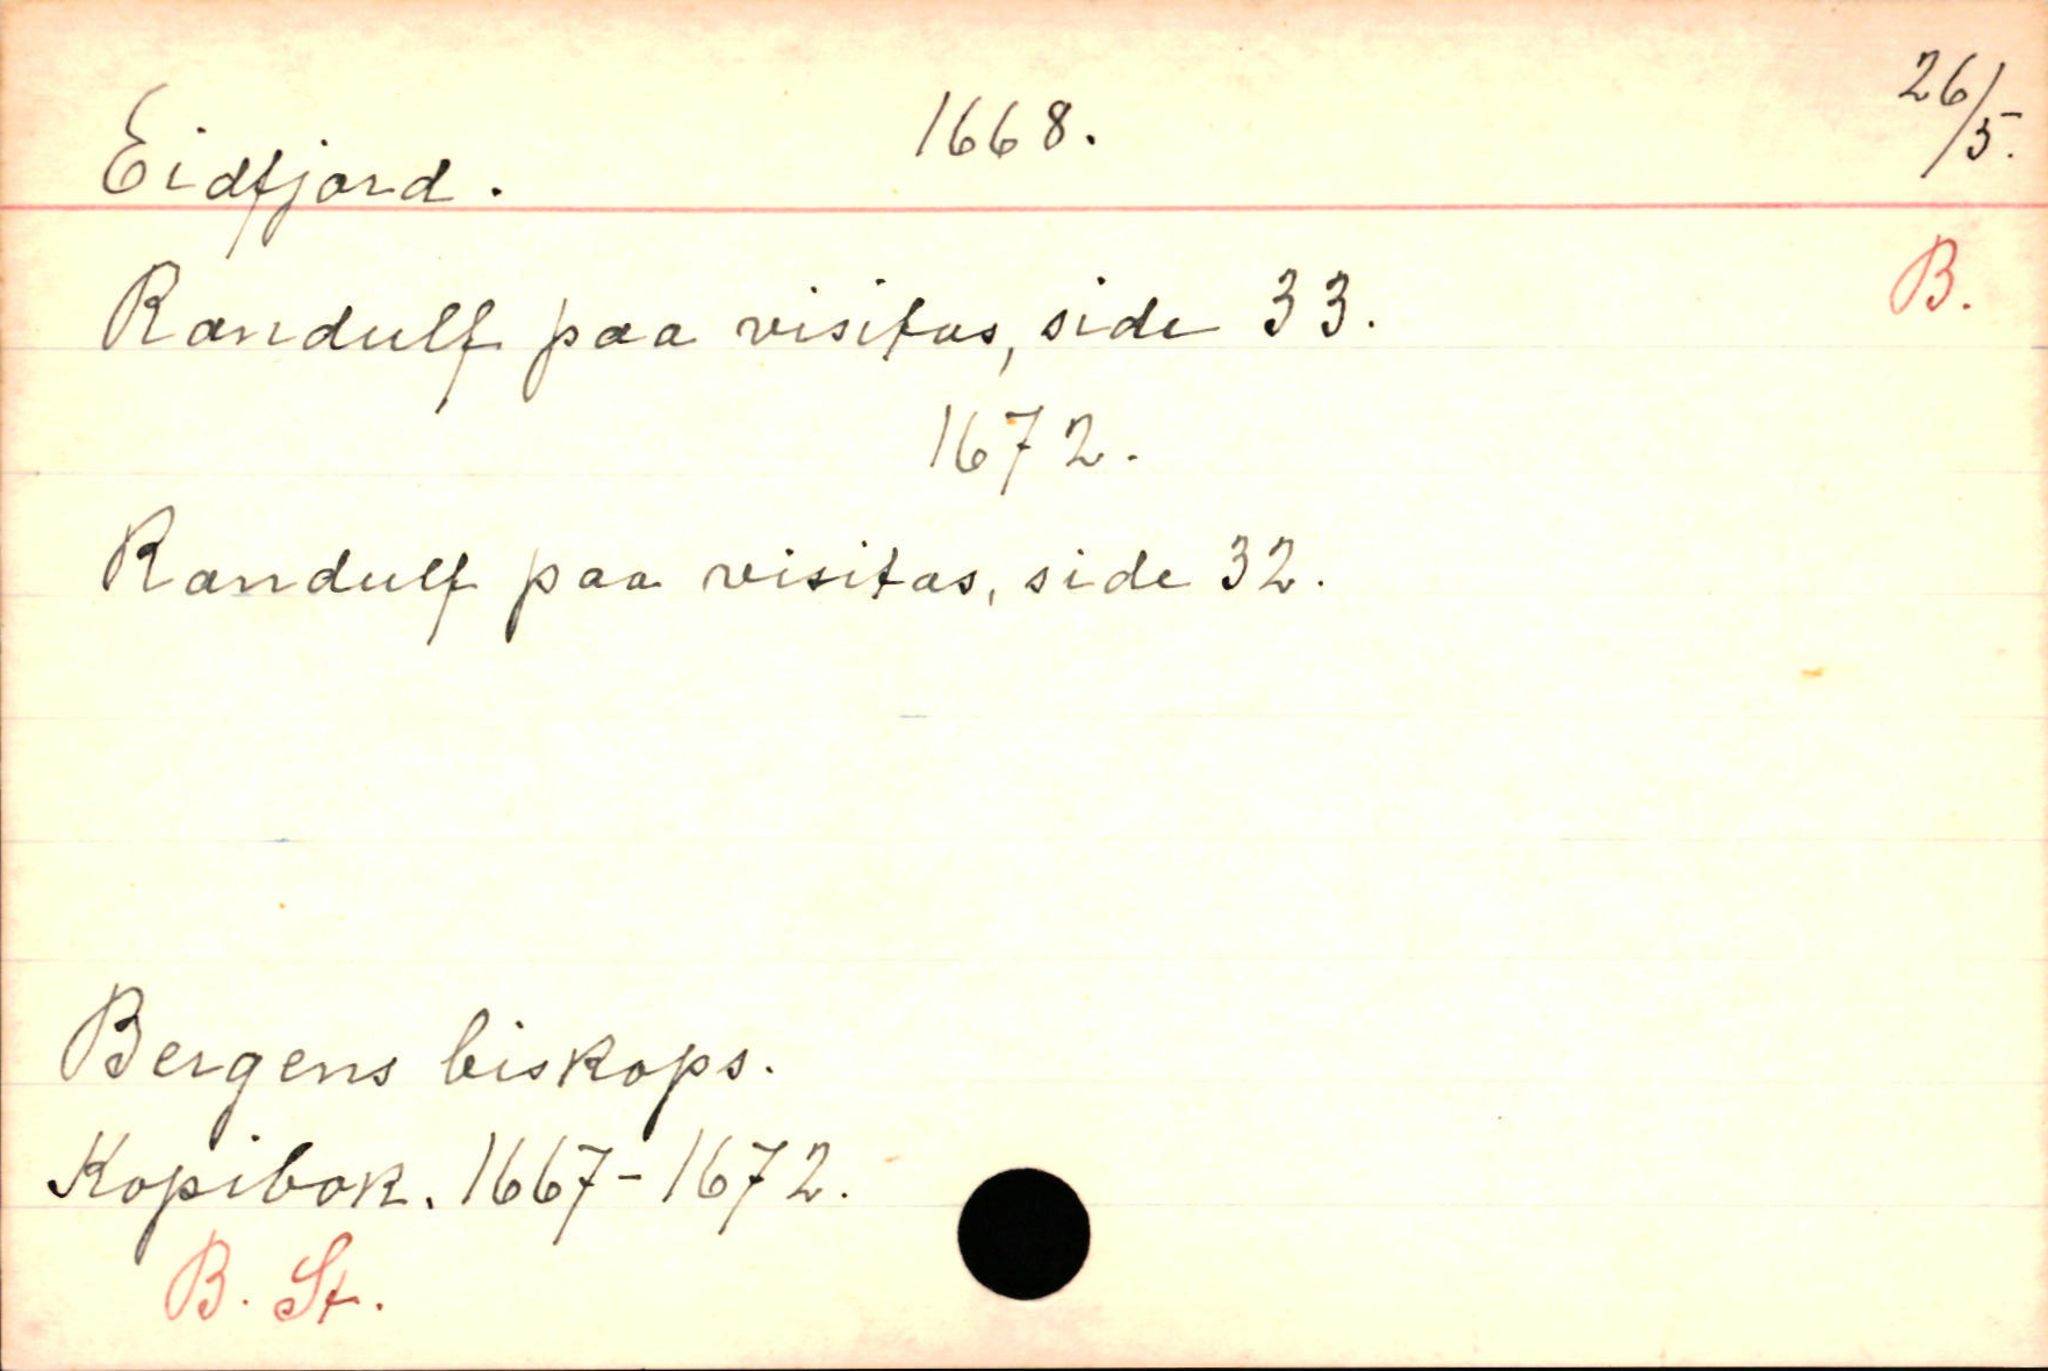 Eidfjord. 1668. 26/5.
B.
Randulf paa visitas, side 33.
1672.
Randulf paa visitas, side 32.
Bergens biskops.
Kopibok. 1667-1672.
B. St.